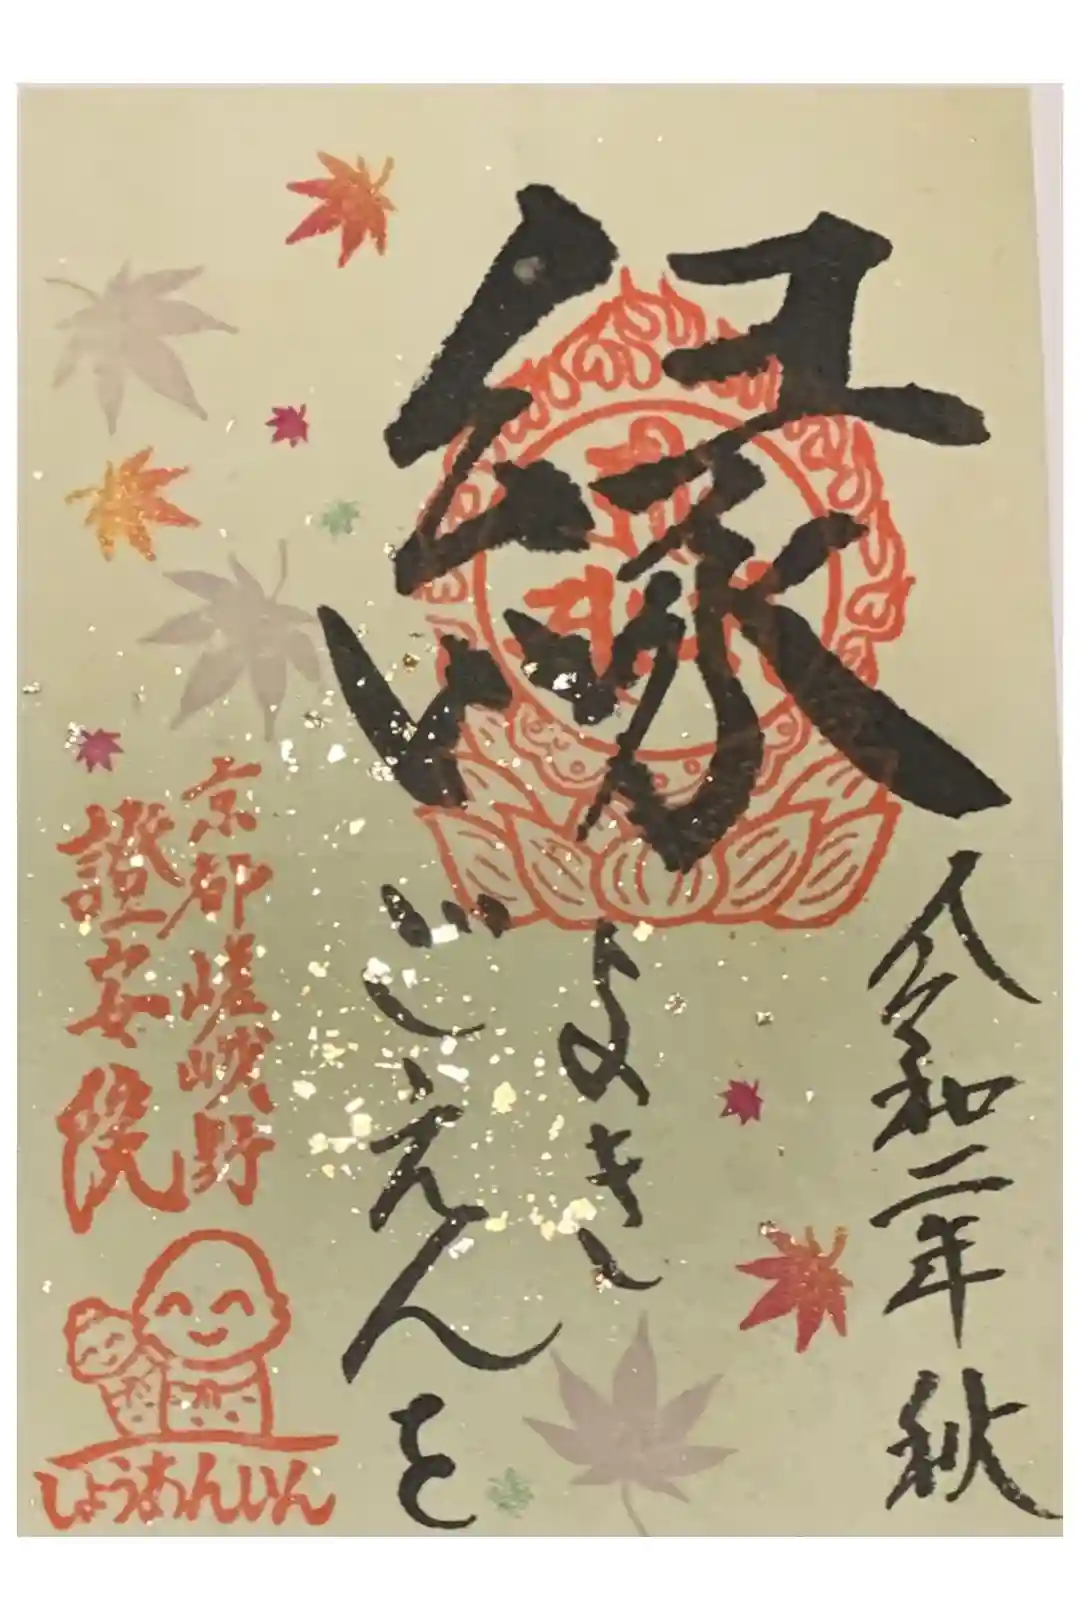 令和二年秋
縁
よき
ごえんを
京都嵯峨野
證安院
しょうあんいん